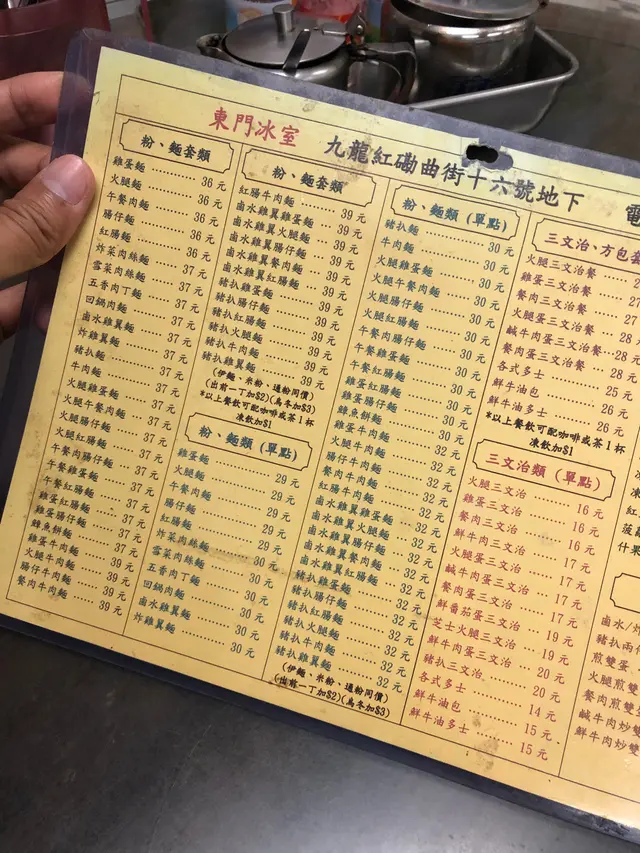 東門冰室 九龍紅磡曲街十六號地下 電
粉、麵套類
雞蛋麵 36元
火腿麵 36元
午餐肉麵 36元
腸仔麵 36元
紅腸麵 36元
炸菜肉絲麵 37元
雪菜肉絲麵 37元
五香肉丁麵 37元
回鍋肉麵 37元
鹵水雞翼麵 37元
炸雞翼麵 37元
豬扒麵 37元
牛肉麵 37元
火腿雞蛋麵 37元
火腿午餐肉麵 37元
火腿腸仔麵 37元
火腿紅腸麵 37元
午餐雞蛋麵 37元
午餐腸仔麵 37元
午餐紅腸麵 37元
雞蛋紅腸麵 37元
雞蛋腸仔麵 37元
鯪魚餅麵 37元
雞蛋牛肉麵 39元
火腿牛肉麵 39元
腸仔牛肉麵 39元
餐肉牛肉麵 39元
粉、麵套類
紅腸牛肉麵 39元
鹵水雞翼雞蛋麵 39元
鹵水雞翼火腿麵 39元
鹵水雞翼腸仔麵 39元
鹵水雞翼餐肉麵 39元
鹵水雞翼紅腸麵 39元
豬扒雞蛋麵 39元
豬扒腸仔麵 39元
豬扒紅腸麵 39元
豬扒火腿麵 39元
豬扒牛肉麵 39元
豬扒雞翼麵 39元
(伊麵、米粉、通粉同價)
(出前一丁加$2)(烏冬加$3)
*以上餐飲可配咖啡或茶1杯
凍飲加$1
粉、麵類(單點)
雞蛋麵 29元
火腿麵 29元
午餐肉麵 29元
腸仔麵 29元
紅腸麵 29元
炸菜肉絲麵 30元
雪菜肉絲麵 30元
五香肉丁麵 30元
回鍋肉麵 30元
鹵水雞翼麵 30元
炸雞翼麵 30元
粉、麵類(單點)
豬扒麵 30元
牛肉麵 30元
火腿雞蛋麵 30元
火腿午餐肉麵 30元
火腿腸仔麵 30元
火腿紅腸麵 30元
午餐腸仔麵 30元
午餐雞蛋麵 30元
午餐紅腸麵 30元
雞蛋紅腸麵 30元
雞蛋腸仔麵 30元
鯪魚餅麵 30元
雞蛋牛肉麵 32元
火腿牛肉麵 32元
腸仔牛肉麵 32元
餐肉牛肉麵 32元
紅腸牛肉麵 32元
鹵水雞翼雞蛋麵 32元
鹵水雞翼火腿麵 32元
鹵水雞翼腸仔麵 32元
鹵水雞翼餐肉麵 32元
鹵水雞翼紅腸麵 32元
豬扒雞蛋麵 32元
豬扒腸仔麵 32元
豬扒紅腸麵 32元
豬扒火腿麵 32元
豬扒牛肉麵 32元
豬扒雞翼麵 32元
(伊麵、米粉、通粉同價)
(出前一丁加$2)(烏冬加$3)
三文治、方包套
火腿三文治餐
雞蛋三文治餐
餐肉三文治餐 27
火腿蛋三文治餐 28
鹹牛肉蛋三文治餐 28
餐肉蛋三文治餐 28元
各式多士 25元
鮮牛油包 26元
鮮牛油多士 26元
*以上餐飲可配咖啡或茶1杯
凍飲加$1
三文治類(單點)
火腿三文治 16元
雞蛋三文治 16元
餐肉三文治 16元
鮮牛肉三文治 17元
火腿蛋三文治 17元
鹹牛肉蛋三文治 17元
餐肉蛋三文治 17元
鮮番茄蛋三文治 19元
芝士火腿三文治 19元
鮮牛肉蛋三文治 20元
豬扒三文治 20元
各式多士 14元
鮮牛油包 15元
鮮牛油多士 15元
紅
菠蘿
什果
鹵水/炸
豬扒兩件
煎雙蛋
火腿煎雙
餐肉煎雙
鹹牛肉炒雙
鮮牛肉炒雙